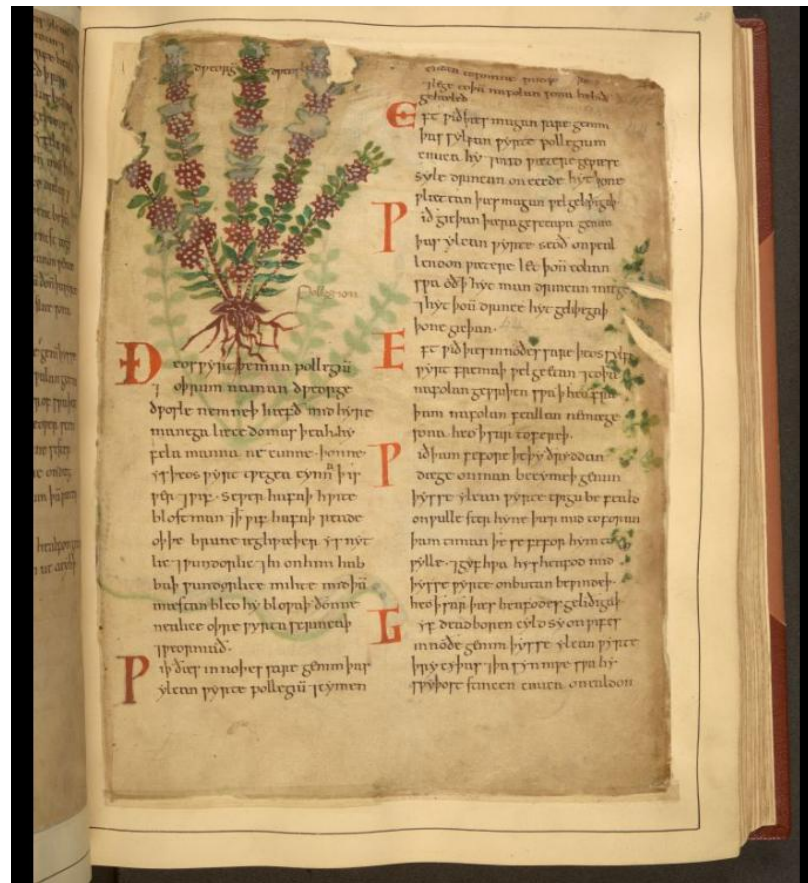 dƿeorge dƿosle
Pollegion
Ðeos ƿyrt þe man pollegiū
⁊ oþrum naman dƿeorge
dƿosle nemneþ hæfð mid hyre
manega læcedomas þeah hy
fela manna ne cunne. þonne
ys þeos ƿyrt tƿegea cynna þ is
ƿer ⁊ ƿif. se ƿer hafaþ hƿite
blostman ⁊ þ ƿif hafaþ reade
oþþe brune æghƿæþer ys nyt
lic ⁊ ƿundorlic ⁊ hi on him hab
baþ ƿundorlice mihte mid þā
mæstan bleo hy bloƿaþ ðonne
nealice oþre ƿyrta scrincaþ
⁊ ƿeorniað.
Ƿiþ ðæs innoþes sare genim þas
ylcan ƿyrte pollegiū ⁊ cymen
⁊ lege to þā nafolan sona he bið
gehæled
Eft ƿið þæs magan sare genim
þas sylfan ƿyrte pollegium
cnuca hy ⁊ mid ƿætere geƿæsc
syle drincan on ecede hyt þone
ƿlættan þæs magan ƿel geliþigaþ
Ƿið gicþan þæra gesceapa genim
þas ylcan ƿyrte seoð on ƿeal
lendon ƿætere læt þoñ colian
sƿa oð þ hyt man drincan mæge
⁊ hyt þoñ drince hyt geliþegaþ
þone gicþan.
Eft ƿið þæs innoðes sare þeos sylfe
ƿyrt fremaþ ƿel geeten ⁊ to þā
nafolan geƿriþen sƿa þ heo frā
þam nafolan feallan ne mæge
sona heo þ sar tofereþ.
Ƿið þam fefore þe þy ðriddan
dæge on man becymeþ genim
þysse ylcan ƿyrte tƿigu befeald
on ƿulle ster hyne þær mid toforan
þam timan þe se fefor hym to
ƿylle. ⁊ gyf hƿa hys heafod mid
þysse ƿyrte onbutan beƿindeþ
heo þ sar þæs heafodes geliðigaþ
Gyf deadboren cyld sy on ƿifes
innoðe genim þysse ylcan ƿyrte
þry cyþas ⁊ þa syn niƿe sƿa hy
sƿyþost stincen cnuca on ealdon